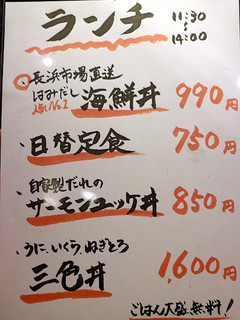 ランチ 11:30〜14:00
長浜市場直送
はみだし
人気No.1 海鮮丼 990円
・日替定食 750円
・自家製だれの
サーモンユッケ丼 850円
・うに、いくら、ねぎとろ
三色丼 1,600円
ごはん大盛無料!